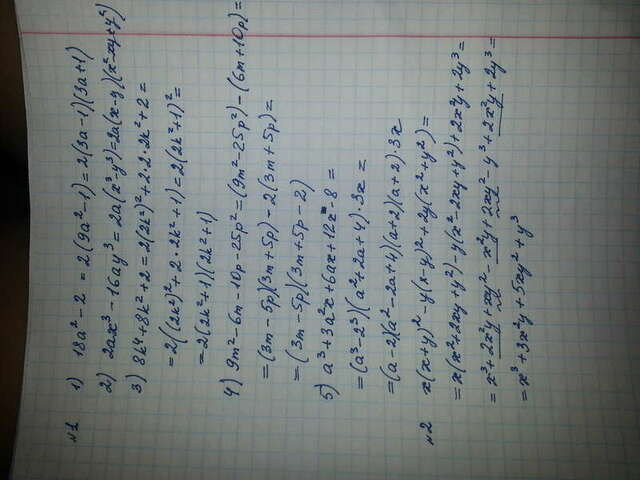 №1 1) 18a² - 2 = 2(9a² - 1) = 2(3a - 1)(3a + 1)
2) 2ax³ - 16ay³ = 2a(x³ - y³) = 2a(x - y)(x² - xy + y²)
3) 8k⁴ + 8k² + 2 = 2(2k²)² + 2·2·2k² + 2 =
= 2((2k²)² + 2·2k² + 1) = 2(2k² + 1)² =
= 2(2k² + 1)(2k² + 1)
4) 9m² - 6m - 10p - 25p² = (9m² - 25p²) - (6m + 10p) =
= (3m - 5p)(3m + 5p) - 2(3m + 5p) =
= (3m - 5p)(3m + 5p - 2)
5) a³ + 3a²x + 6ax + 12x - 8 =
= (a³ - 2³)(a² + 2a + 4)·3x =
= (a - 2)(a² - 2a + 4)(a + 2)(a + 2)·3x
№2 x(x + y)² - y(x - y)² + 2y(x² + y²) =
= x(x² + 2xy + y²) - y(x² - 2xy + y²) + 2x²y + 2y³ =
= x³ + 2x²y + xy² - x²y + 2xy² - y³ + 2x²y + 2y³ =
= x³ + 3x²y + 5xy² + y³